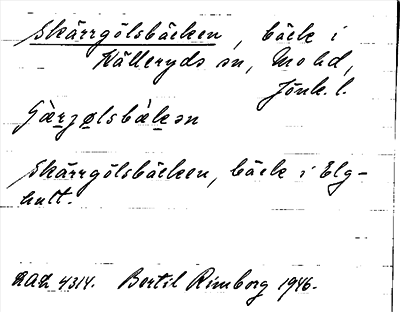 Skärrgölsbäcken, bäck i
Källeryds sn, Mo hd,
Jönk. l.
Skärrgölsbäcken, bäck i Elg-
hult.
4314. Bertil Rimborg 1946.